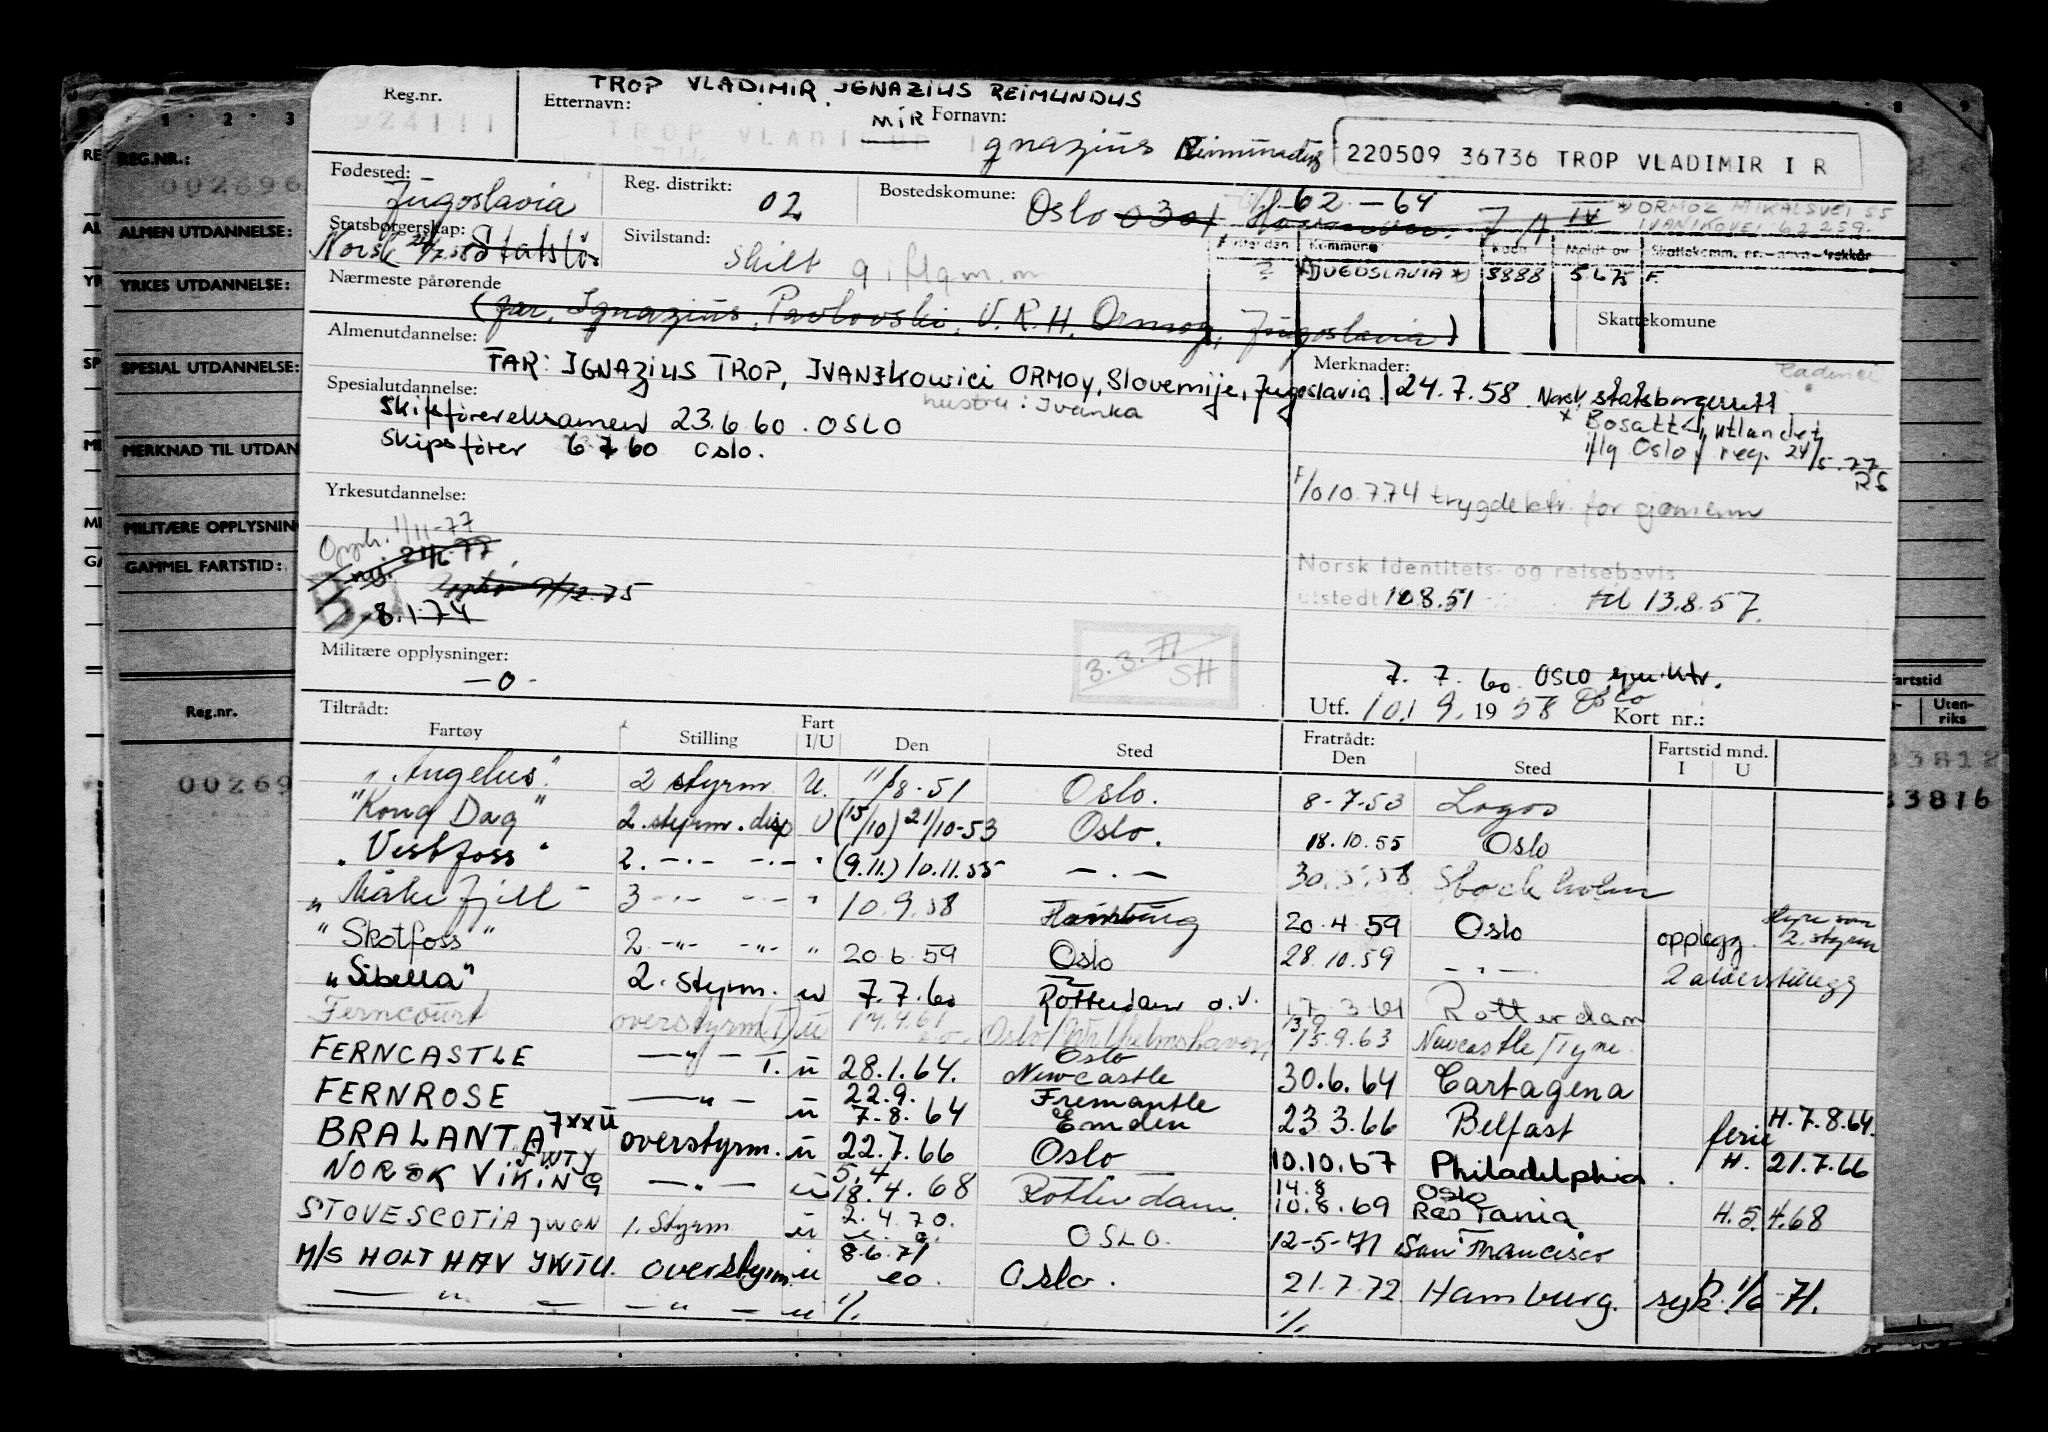 TROP VLADIMIR IGNAZIUS REIMUNDUS
Reg.nr.
Etternavn:
Fornavn:
MIR
924111
TROP VLADI
Ignazius Reimundus
220509 36736 TROP VLADIMIR I R
Fødested:
Jugoslavia
Reg. distrikt:
02
Bostedskomune:
Oslo 0301
62 - 64
IV
* ORMOZ MIKALSVEI 55
IVANIKOVEI 62259.
Statsborgerskap:
Norsk 24/7.58 Statsløs
Sivilstand:
skilt g. iflg m.m
Kommune
Meldt av
JUGOSLAVIA * 8888 5675 F.
Nærmeste pårørende
(far, Ignazius, Pavlovski, V.R.H. Ormoz, Jugoslavia)
Skattekomune
Almenutdannelse:
FAR: IGNAZIUS TROP, IVANJKOWICI ORMOY, Slovenije, Jugoslavia
hustru: Ivanka
Merknader:
24.7.58. Norsk statsborgerrett
* Bosatt i utlandet
iflg Oslo f. reg. 24/5.77
RS
Spesialutdannelse:
Skipsførereksamen 23.6.60. OSLO
Skipsfører 6 7 60 Oslo.
F/010.774 trygdektr. for sjømenn
Yrkesutdannelse:
Opph. 1/11-77
ny. 21/6-77
9/12-75
8.1.74
Norsk Identitets- og reisebevis
utstedt 10.8.51 til 13.8.57.
Militære opplysninger:
-0-
3.3.71
SH
7. 7. 60 OSLO sjm.ktr.
Utf. 10/9. 1958 Oslo
Kort nr.:
Tiltrådt:
Fratrådt:
Fartstid mnd.
Fartøy Stilling Fart I/U Den Sted Den Sted I U
"Angelus" 2 styrm U. 11/8-51 Oslo. 8-7-53 Lagos
"Kong Dag" 2. styrm. disp U (15/10) 21/10-53 Oslo. 18.10.55 Oslo
"Vestfoss" 2. -"- -"- " (9.11.) 10.11.55 -"- 30.5.58 Stockholm
"Måkefjell" 3 -"- -"- " 10.9.58 Hamburg 20.4.59 Oslo opplegg. styrm 2. styrm
"Skotfoss" 2. -"- -"- " 20.6.59 Oslo 28.10.59 -"- 2 alderstillegg
"Sibella" 2. styrm. u 7.7.60 Rotterdam o.v. 17.3.61 Rotterdam
Ferncourt overstyrm (T) u 14.4.61 Oslo/Wilhelmshaven 13/9 15.9.63 Newcastle/Tyne
FERNCASTLE -"- T. u 28.1.64. Oslo Newcastle 30.6.64 Cartagena
FERNROSE -"- u 22.9. 7.8.64 Fremantle Emden 23.3.66 Belfast ferie H.7.8.64.
BRALANTA 7XXU overstyrm. u 22.7.66 Oslo 10.10.67 Philadelphia H. 21.7.66
NORSK VIKING JWTY -"- u 5.4 18.4.68 Rotterdam. 14.8 10.8.69 Oslo Ras Tania H. 5.4.68
STOVE SCOTIA JWON 1. Styrm u 2.4.70. OSLO. 12-5-71 San Francisco
M/S HOLTHAV JKTU. overstyrm. u 8.6.71 eo. Oslo. 21.7.72 Hamburg. syk. 1/6 71.
-"- -"- u 1/. 1/.
REG.NR.:
002696
ALMEN UTDANNELSE:
YRKES UTDANNELSE:
SPESIAL UTDANNELSE:
MERKNAD TIL UTDAN
MILITÆRE OPPLYSNIN
GAMMEL FARTSTID:
Reg.nr.
00269
artstid
Uten-
riks
33812
33816